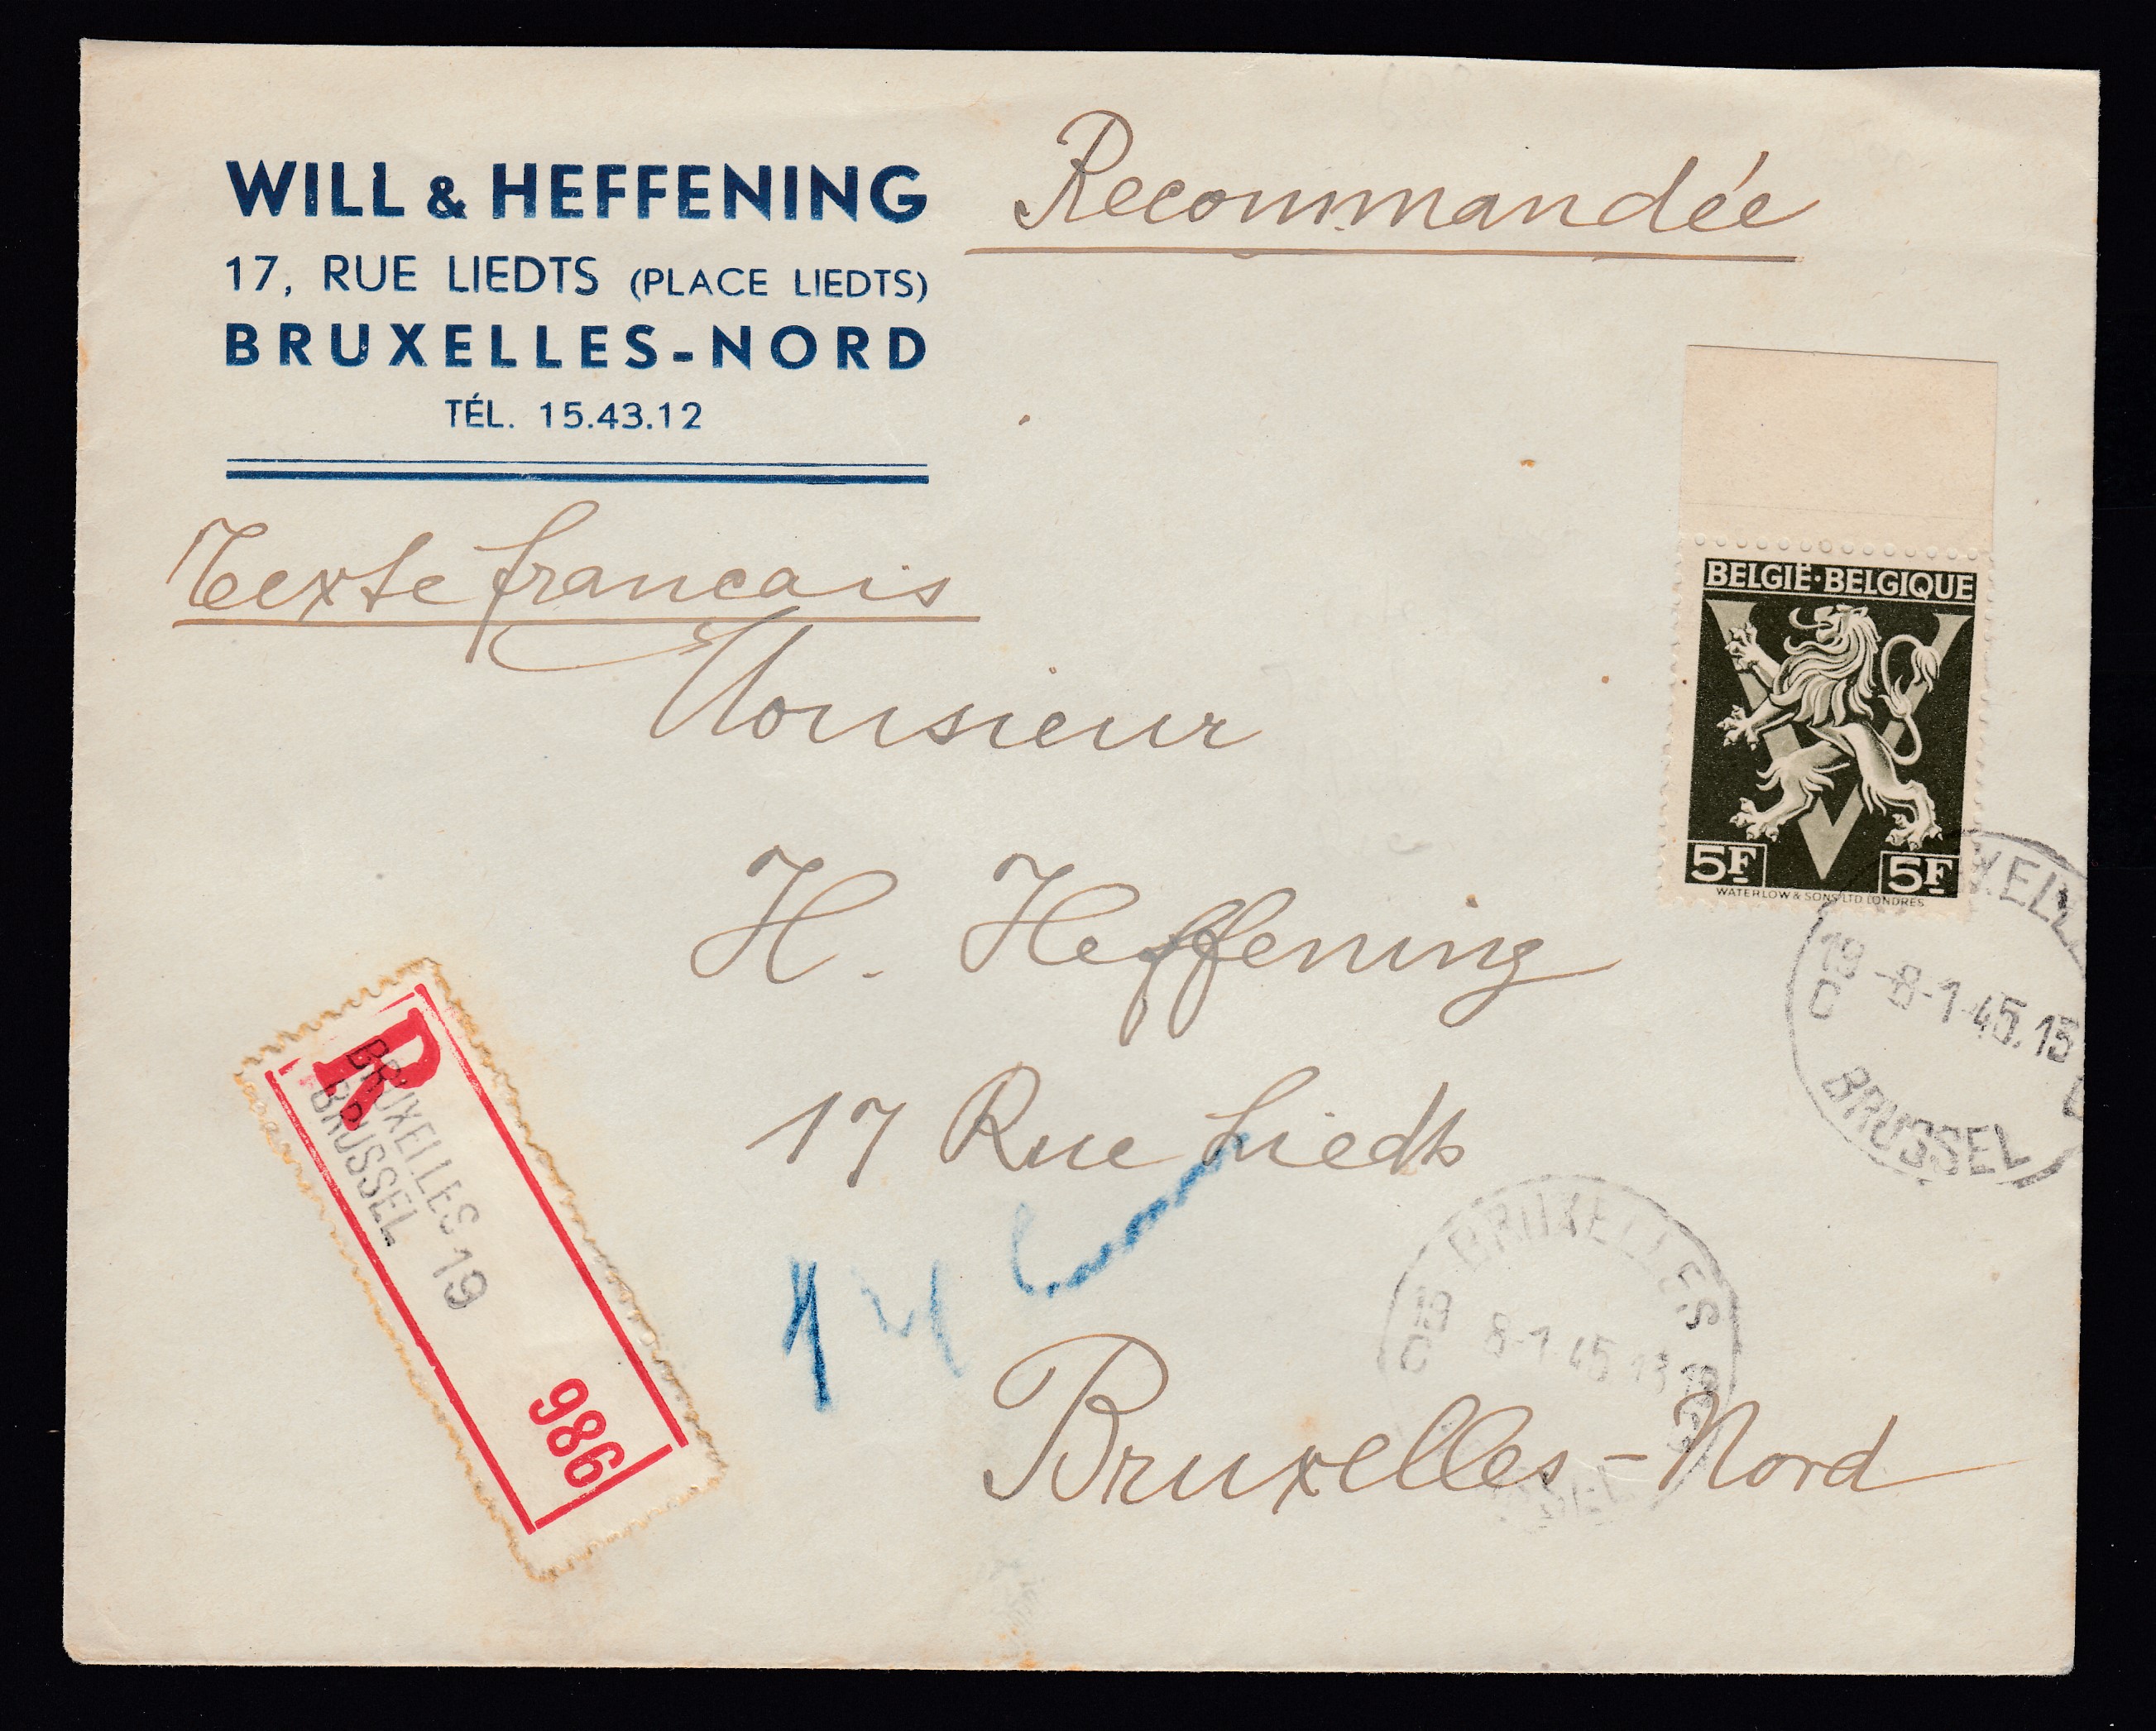 WILL & HEFFENING
17, RUE LIEDTS (PLACE LIEDTS)
BRUXELLES-NORD
TÉL. 15.43.12
Recommandée
Texte francais
Monsieur
H. Heffening
17 Rue Liedts
Bruxelles-Nord
BELGIË·BELGIQUE
5F 5F
WATERLOW & SONS LTD LONDRES
19 -8-1-45.13
C
BRUSSEL
BRUXELLES
19 8-1-45 13 19
C
R
BRUXELLES 19
BRUSSEL
986